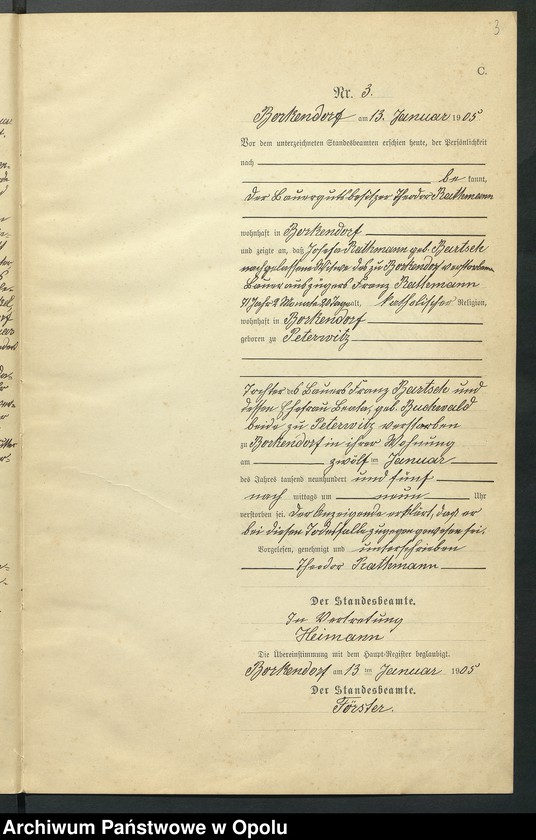 3
C.
Nr. 3.
Borkendorf am 13. Januar 1905
Vor dem unterzeichneten Standesbeamten erschien heute, der Persönlichkeit
nach
be kannt,
der Bauergutsbesitzer Theodor Rathmann
wohnhaft in Borkendorf
und zeigte an, daß Josefa Rathmann geb. Bartsch
nachgelassene Witwe des zu Borkendorf verstorbenen
Bauerauszügers Franz Rathmann
71 Jahr 2 Monate 20 Tage alt, katholischer Religion,
wohnhaft in Borkendorf
geboren zu Peterwitz
Tochter des Bauers Franz Bartsch und
dessen Ehefrau Beata, geb. Buchwald
beide zu Peterwitz verstorben
zu Borkendorf in ihrer Wohnung
am zwölf ten Januar
des Jahres tausend neunhundert und fünf
nach mittags um neun Uhr
verstorben sei. Der Anzeigende erklärt, daß er
bei diesem Todesfalle zugegen gewesen sei.
Vorgelesen, genehmigt und unterschrieben
Theodor Rathmann
Der Standesbeamte.
In Vertretung
Heimann
Die Übereinstimmung mit dem Haupt-Register beglaubigt.
Borkendorf am 13 ten Januar 1905
Der Standesbeamte.
Förster.
Archiwum Państwowe w Opolu